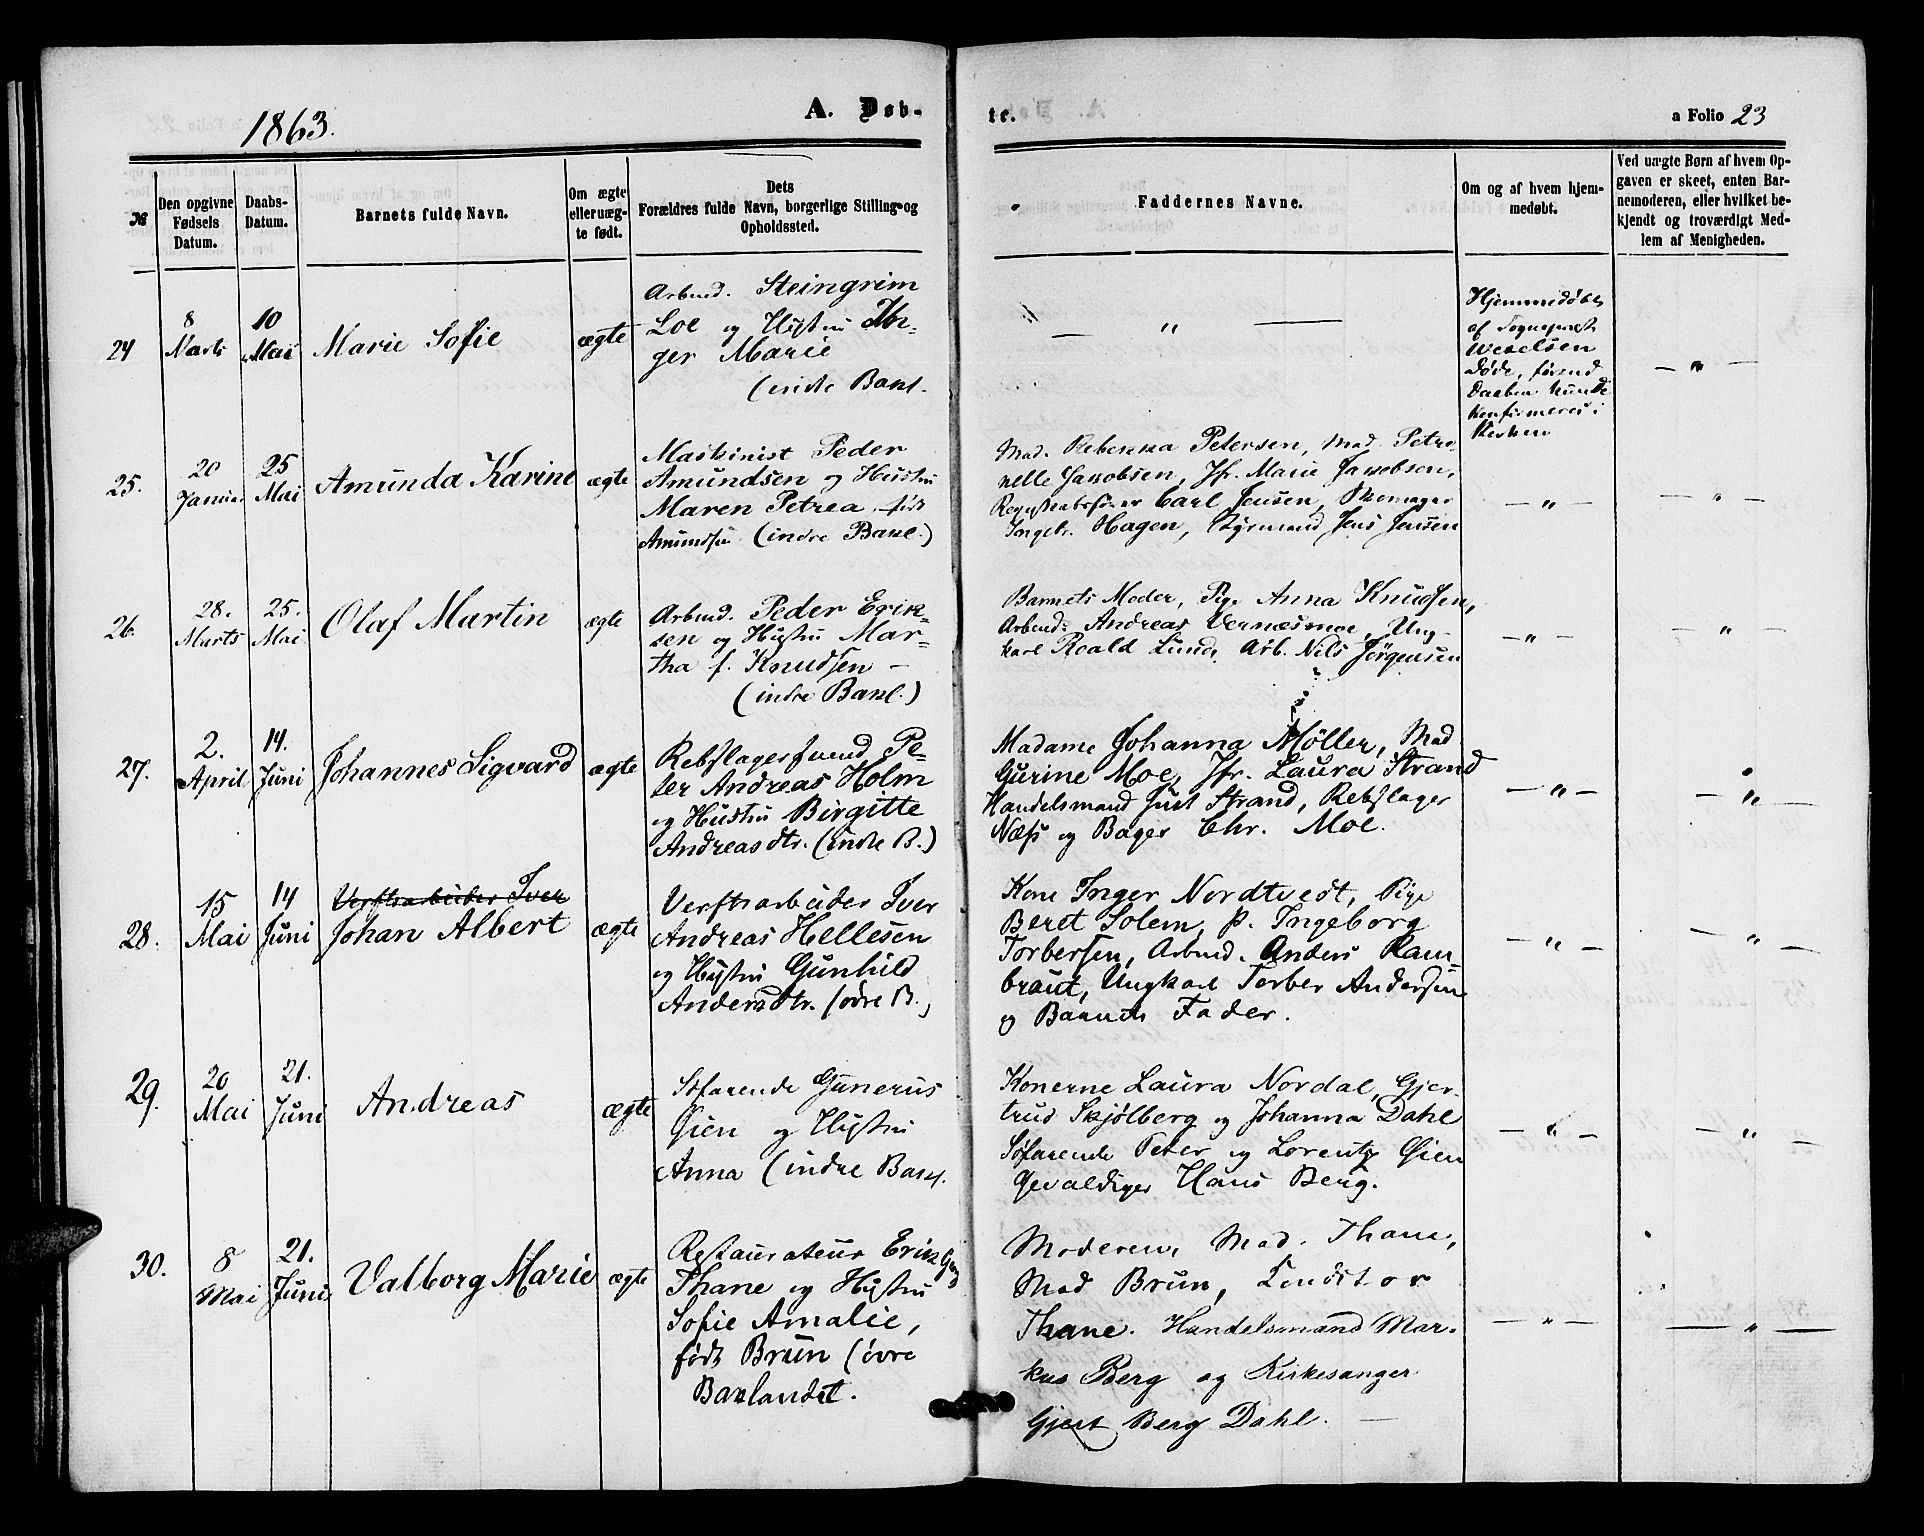 1863.
A. Døb-
te.
a Folio 23
№
Den opgivne Fødsels Datum.
Daabs-Datum.
Barnets fulde Navn.
Om ægte eller uæg-te født.
Dets Forældres fulde Navn, borgerlige Stilling og Opholdssted.
Faddernes Navne.
Om og af hvem hjem-medøbt.
Ved uægte Børn af hvem Op-gaven er skeet, enten Bar-nemoderen, eller hvilket be-kjendt og troværdigt Med-lem af Menigheden.
24
8 Marts
10 Mai
Marie Sofie
ægte
Arbmd. Steingrim
Loe og Hustru In-
ger Marie
(indre Bakl.
— " —
Hjemmedøbt
af Sognepræst
Wexelsen
Døde, førend
Daaben kunde
konfirmeres i
Kirken
— " —
25.
20 Januar
25 Mai
Amunda Karine
ægte
Maskinist Peder
Amundsen og Hustru
Maren Petrea, født
Amundsen (indre Bakl.)
Mad. Rebekka Petersen, Mad. Petro-
nelle Jakobsen, Jfr. Marie Jakobsen,
Regnskabsfører Carl Jensen, Skomager
Ingebr. Hagen, Styrmand Jens Jensen
— " —
— " —
26.
28. Marts
25. Mai
Olaf Martin
ægte
Arbmd. Peder Erik-
sen og Hustru Mar-
tha f. Knudsen —
(indre Bakl.)
Barnets Moder, Pige Anna Knudsen,
Arbmd. Andreas Vernæsmoe, Ung-
karl Roald Lund, Arb. Nils Jørgensen
— " —
— " —
27.
2. April
14. Juni
Johannes Sigvard
ægte
Rebslagersvend Pe-
ter Andreas Holm
og Hustru Birgitte
Andreasdtr. (indre B.)
Madame Johanna Møller, Mad
Gurine Moe, Jfr. Laura Strand
Handelsmand Just Strand, Rebslager
Næss og Bager Chr. Moe.
— " —
— " —
28.
15 Mai
14 Juni
Verftsarbeider Iver
Johan Albert
ægte
Verftsarbeider Iver
Andreas Hellesen
og Hustru Gunhild
Andersdtr. (øvre B.)
Kone Inger Nordtvedt, Pige
Beret Solem, P. Ingeborg
Torbersen, Arbmd. Anders Ram-
braut, Ungkarl Torber Andersen
og Barnets Fader.
— " —
— " —
29.
20 Mai
21. Juni
Andreas
ægte
Søfarende Gunerus
Øien og Hustru
Anna (indre Bakl.
Konerne Laura Nordal, Gjer-
trud Skjølberg og Johanna Dahl
Søfarende Peter og Lorentz Øien
Gevaldiger Hans Berg.
— " —
— " —
30.
8 Mai
21. Juni
Valborg Marie
ægte
Restaurateur Erik
Thane og Hustru
Sofie Amalie,
født Brun (øvre
Baklandet.
Moderen, Mad. Thane,
Mad Brun,
Thane. Handelsmand Mar-
kus Berg og Kirkesanger
Gjert Berg Dahl. —
— " —
— " —